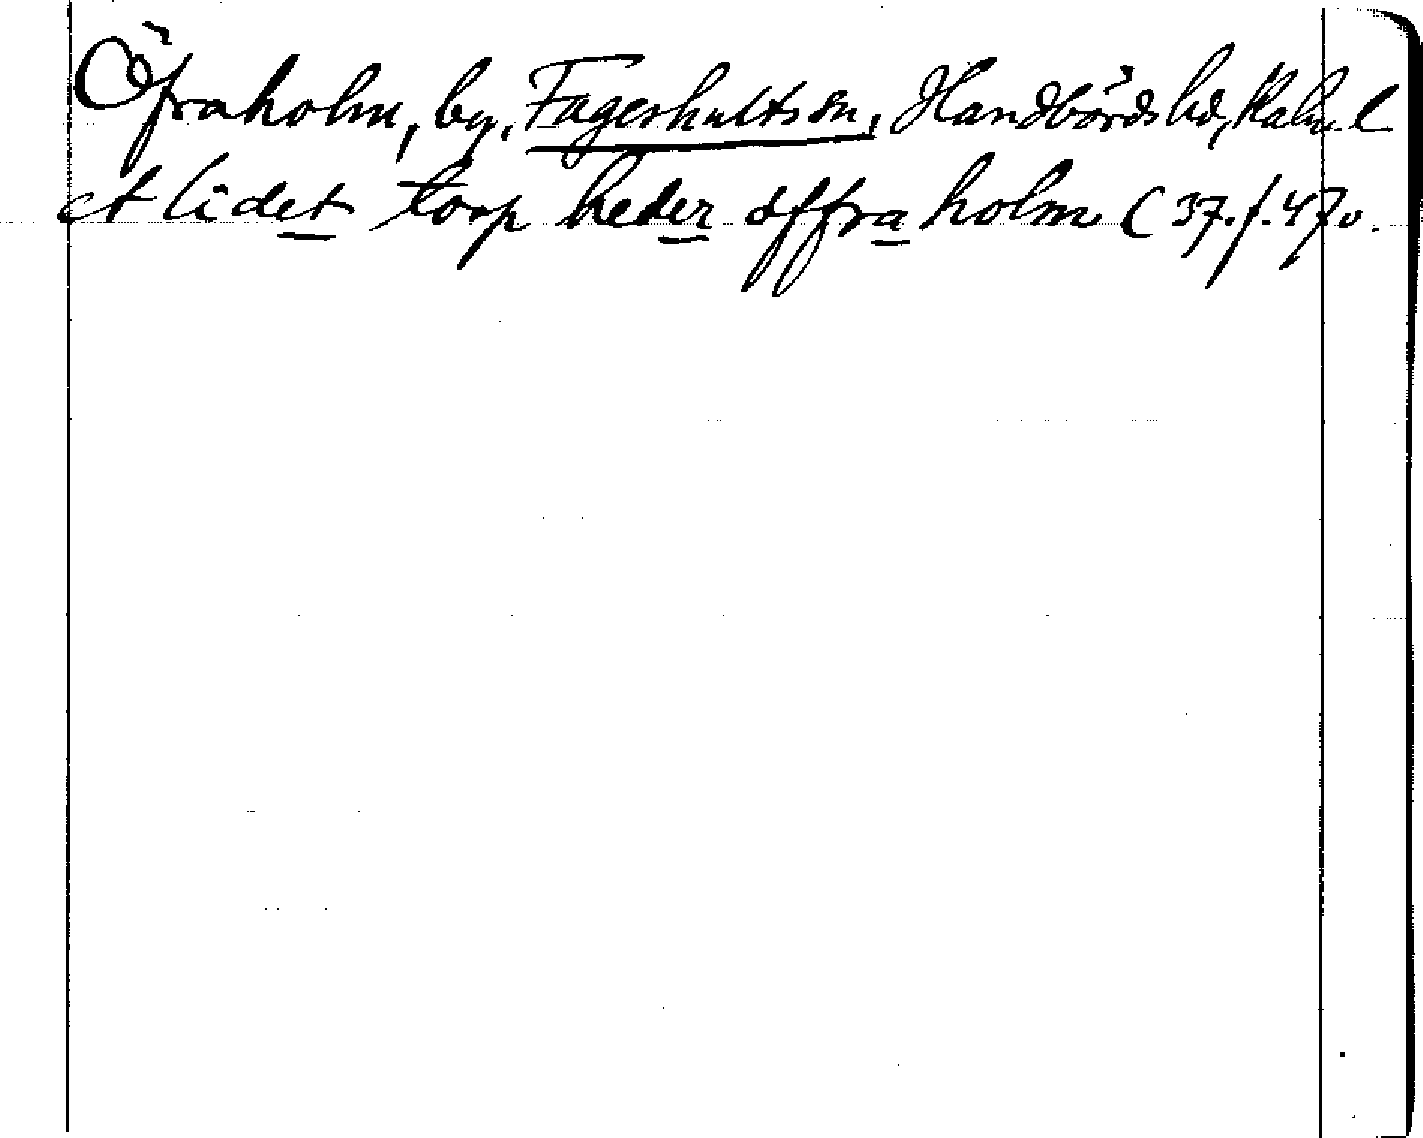 Öfraholm, by, Fagerhults sn, Handbörds hd, Kalm. l
et lidet torp heder offra holm (37. f. 47 v.